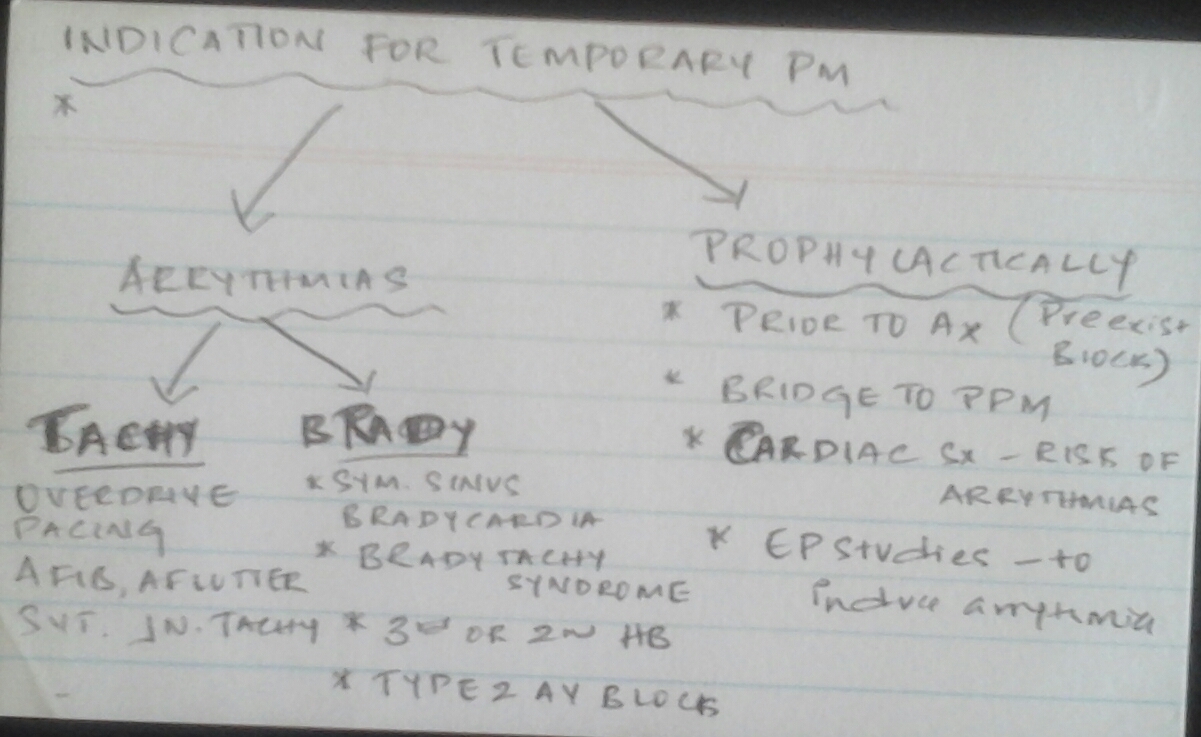 INDICATION FOR TEMPORARY PM
*
ARRYTHMIAS
TACHY
OVERDRIVE
PACING
AFIB, AFLUTTER
SVT. JN. TACHY
BRADY
* SYM. SINUS
BRADYCARDIA
* BRADY TACHY
SYNDROME
* 3rd OR 2nd HB
* TYPE 2 AV BLOCK
PROPHYLACTICALLY
* PRIOR TO Ax (Preexist
Block)
* BRIDGE TO PPM
* CARDIAC Sx - RISK OF
ARRYTHMIAS
* EP Studies - to
induce arrythmia